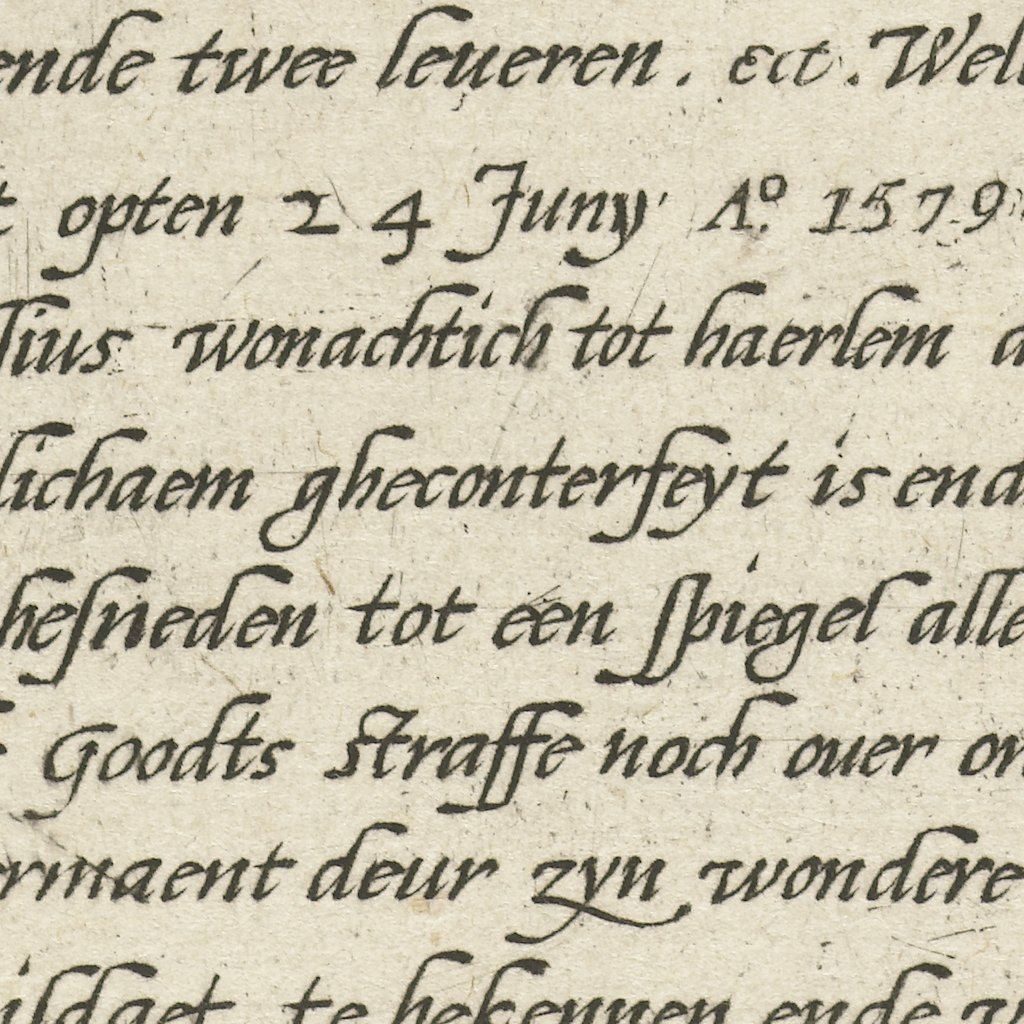 ende twee leueren. ect. Well
t opten 24 Juny A.º 1579
lius wonachtich tot haerlem d
lichaem gheconterfeyt is end
hesneden tot een spiegel alle
Goodts straffe noch ouer on
ermaent deur zyn wondere
ildaet te bekennen ende v